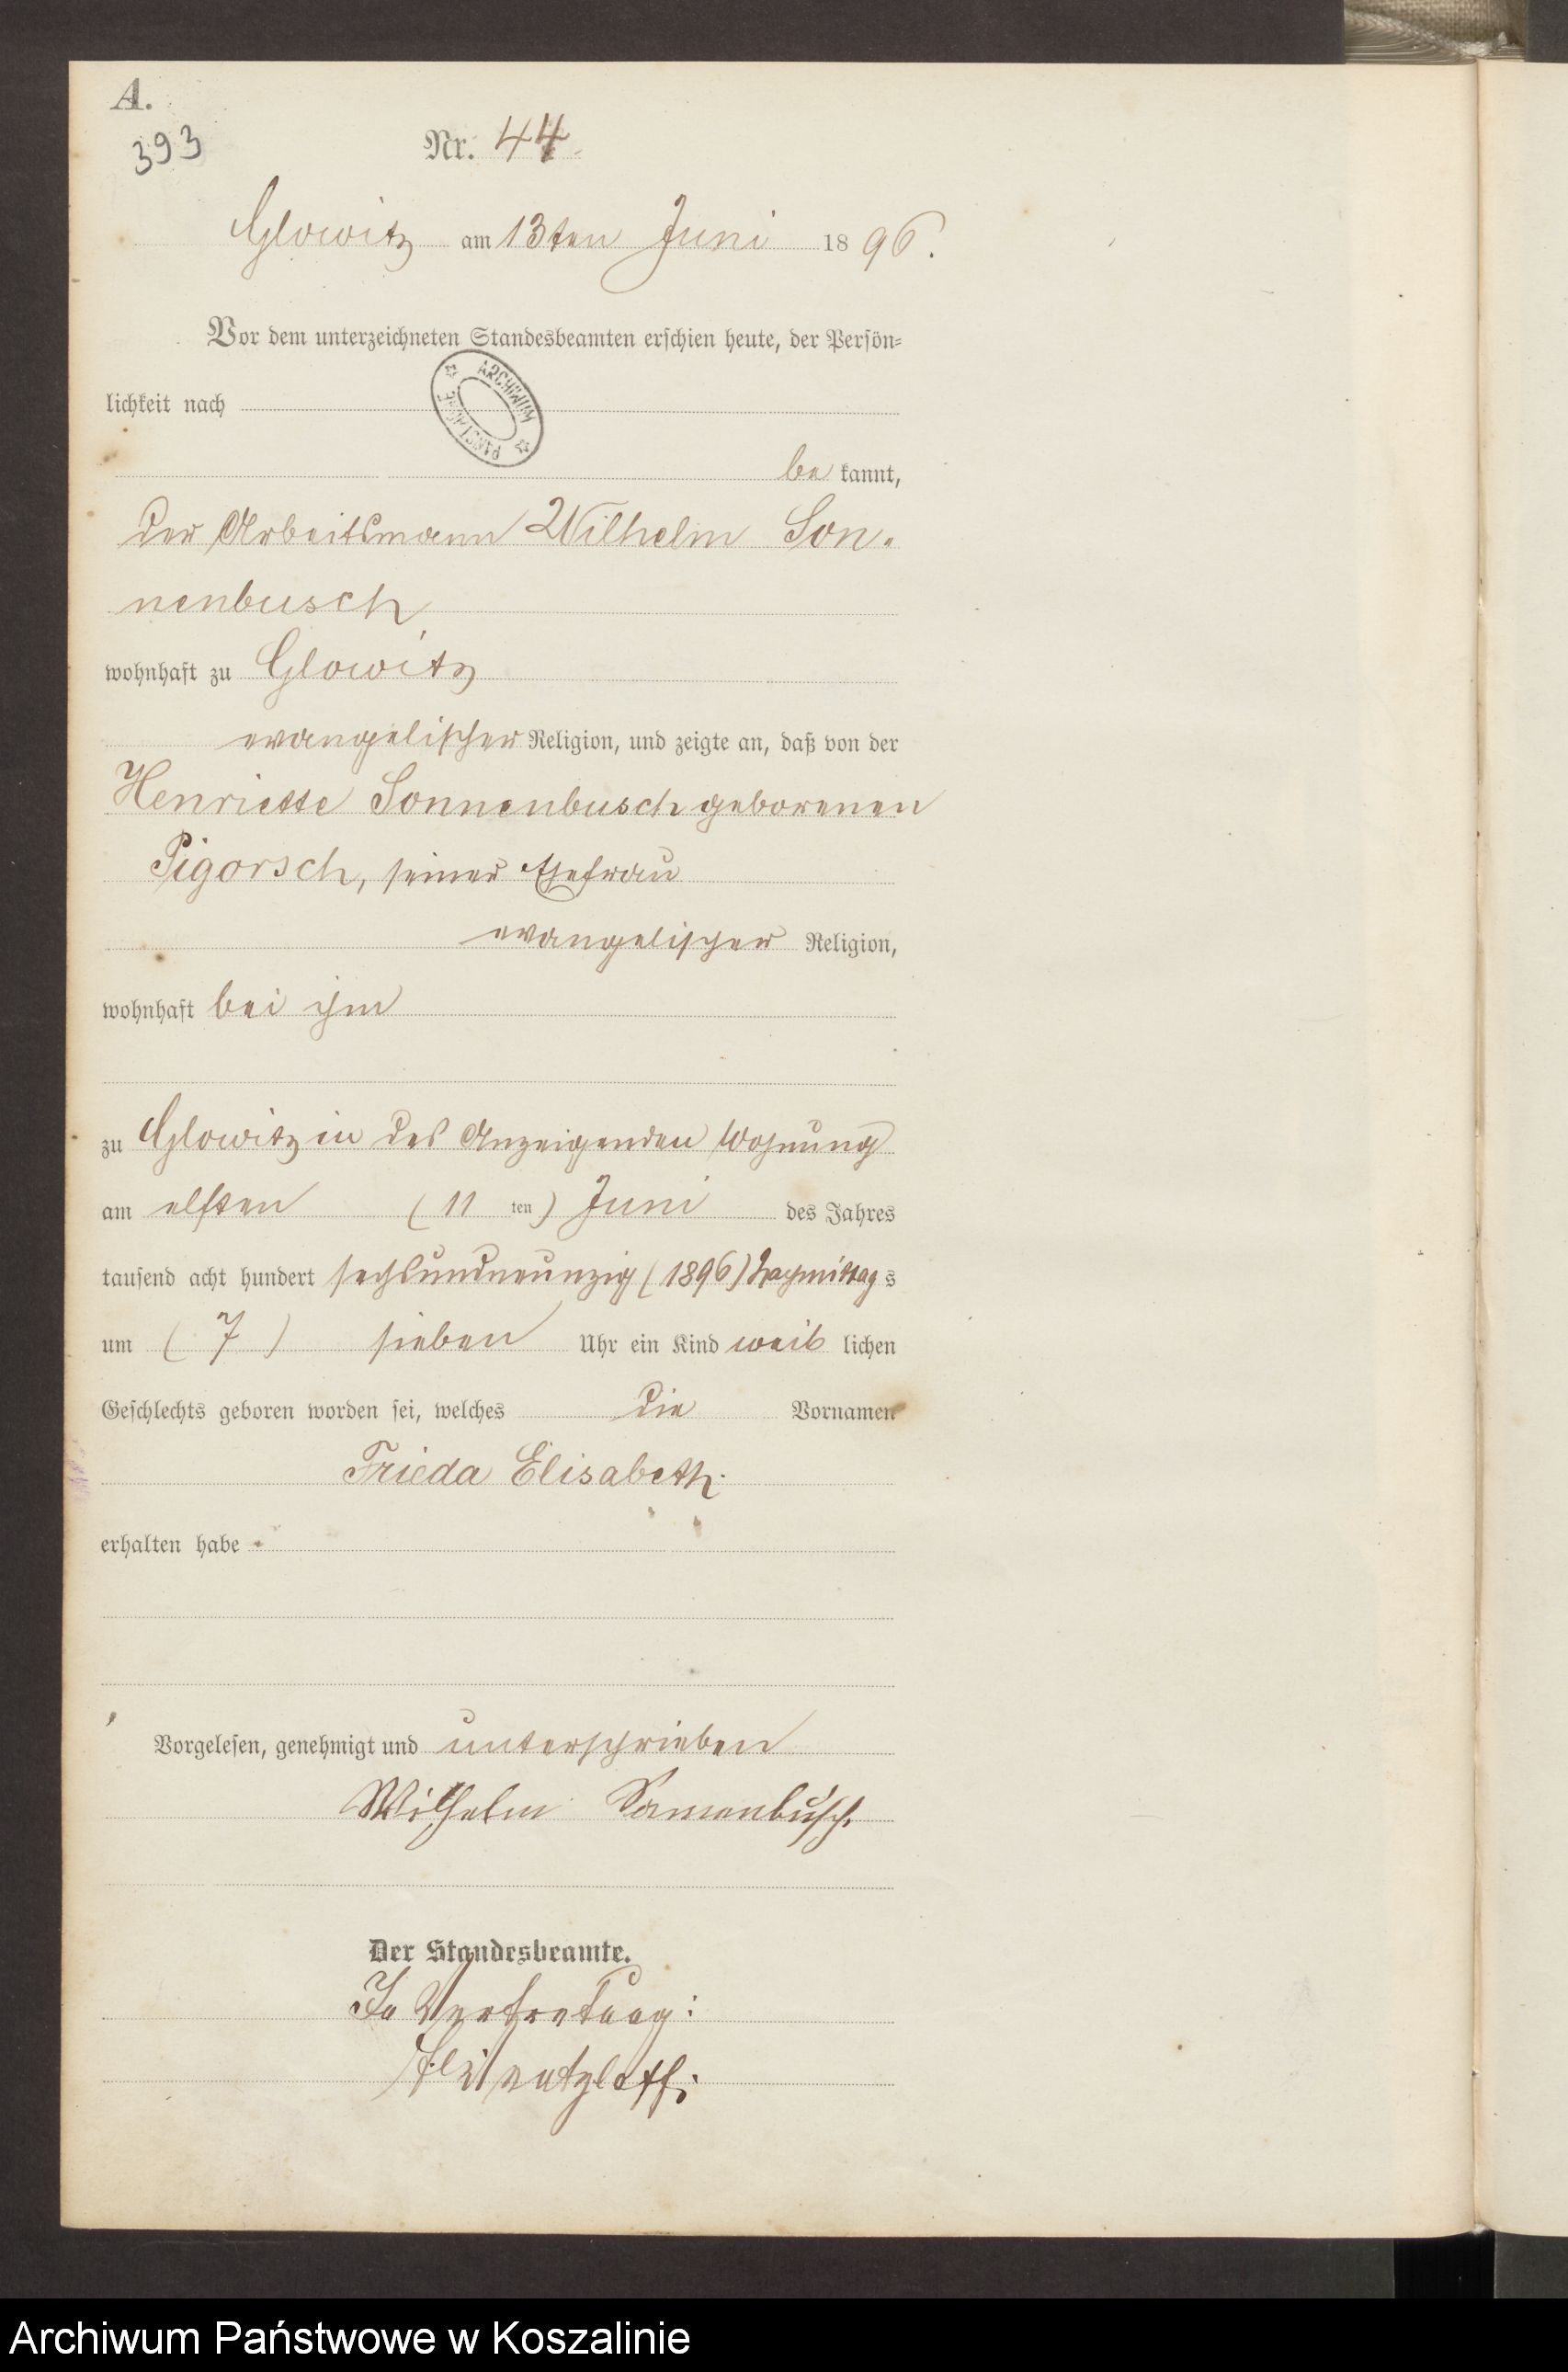 A.
393
Nr. 44
Glowitz am 13ten Juni 1896.
Vor dem unterzeichneten Standesbeamten erschien heute, der Persön-
lichkeit nach
ARCHIWUM PAŃSTWOWE
be kannt,
der Arbeitsmann Wilhelm Son-
nenbusch
wohnhaft zu Glowitz
evangelischer Religion, und zeigte an, daß von der
Henriette Sonnenbusch geborenen
Pigorsch, seiner Ehefrau
evangelischer Religion,
wohnhaft bei ihm
zu Glowitz in des Anzeigenden Wohnung
am elften (11 ten) Juni des Jahres
tausend acht hundert sechsundneunzig (1896) Nachmittag s
um (7) sieben Uhr ein Kind weib lichen
Geschlechts geboren worden sei, welches die Vornamen
Frieda Elisabeth.
erhalten habe
Vorgelesen, genehmigt und unterschrieben
Wilhelm Sonnenbusch.
Der Standesbeamte.
In Vertretung:
Archiwum Państwowe w Koszalinie